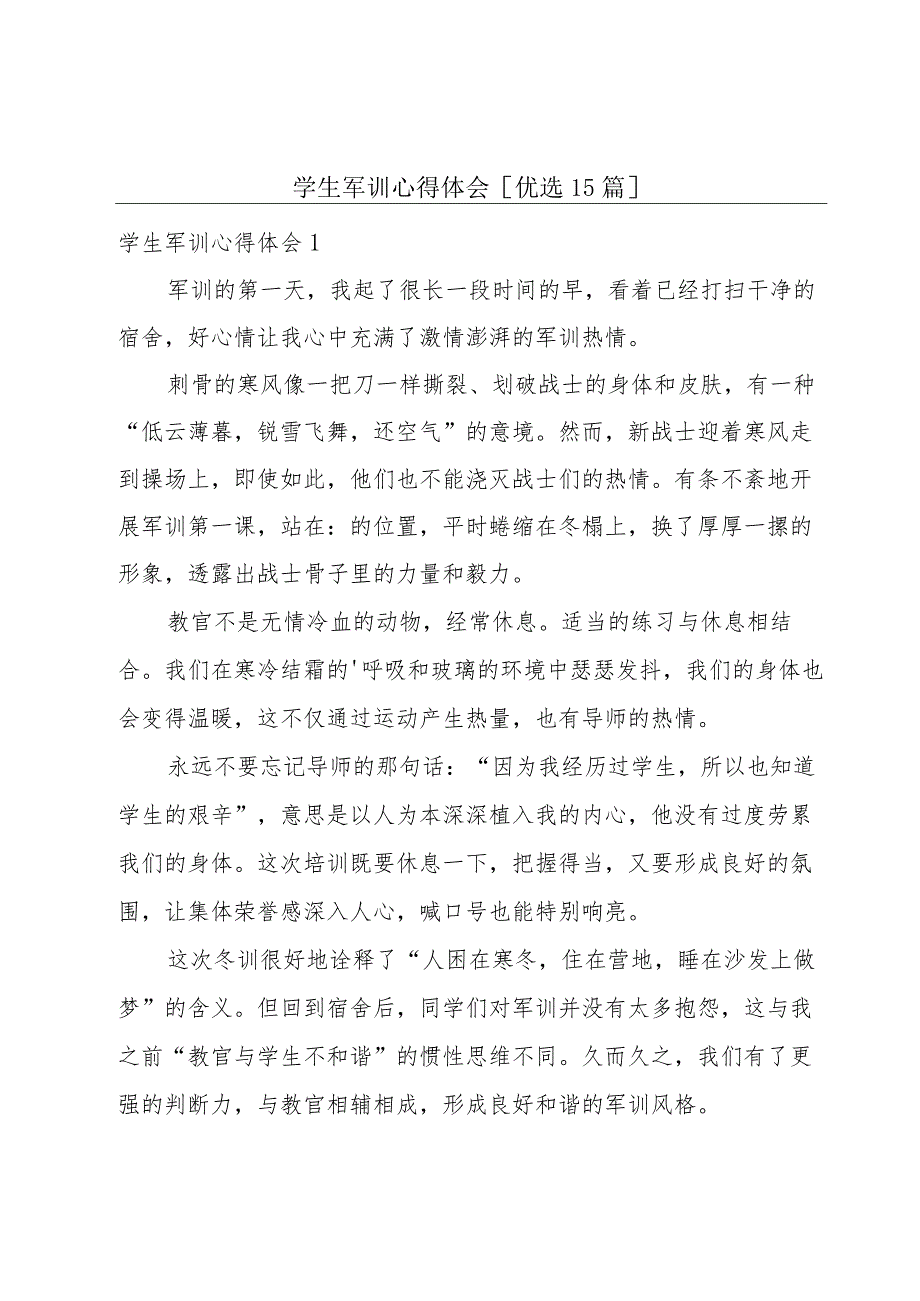 学生军训心得体会［优选 15 篇］
学生军训心得体会 1
军训的第一天，我起了很长一段时间的早，看着已经打扫干净的
宿舍，好心情让我心中充满了激情澎湃的军训热情。
刺骨的寒风像一把刀一样撕裂、划破战士的身体和皮肤，有一种
“低云薄暮，锐雪飞舞，还空气”的意境。然而，新战士迎着寒风走
到操场上，即使如此，他们也不能浇灭战士们的热情。有条不紊地开
展军训第一课，站在：的位置，平时蜷缩在冬榻上，换了厚厚一摞的
形象，透露出战士骨子里的力量和毅力。
教官不是无情冷血的动物，经常休息。适当的练习与休息相结
合。我们在寒冷结霜的'呼吸和玻璃的环境中瑟瑟发抖，我们的身体也
会变得温暖，这不仅通过运动产生热量，也有导师的热情。
永远不要忘记导师的那句话：“因为我经历过学生，所以也知道
学生的艰辛”，意思是以人为本深深植入我的内心，他没有过度劳累
我们的身体。这次培训既要休息一下，把握得当，又要形成良好的氛
围，让集体荣誉感深入人心，喊口号也能特别响亮。
这次冬训很好地诠释了“人困在寒冬，住在营地，睡在沙发上做
梦”的含义。但回到宿舍后，同学们对军训并没有太多抱怨，这与我
之前“教官与学生不和谐”的惯性思维不同。久而久之，我们有了更
强的判断力，与教官相辅相成，形成良好和谐的军训风格。